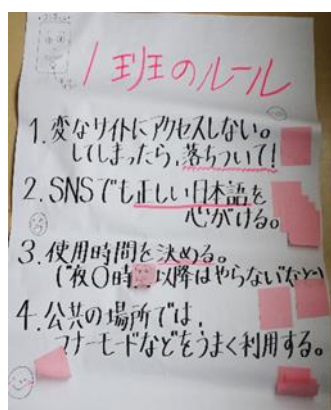 1班のルール
1. 変なサイトにアクセスしない。
してしまったら、落ちついて!
2. SNSでも正しい日本語を
心がける。
3. 使用時間を決める。
(夜〇時以降はやらないなど)
4. 公共の場所では、
マナーモードなどをうまく利用する。